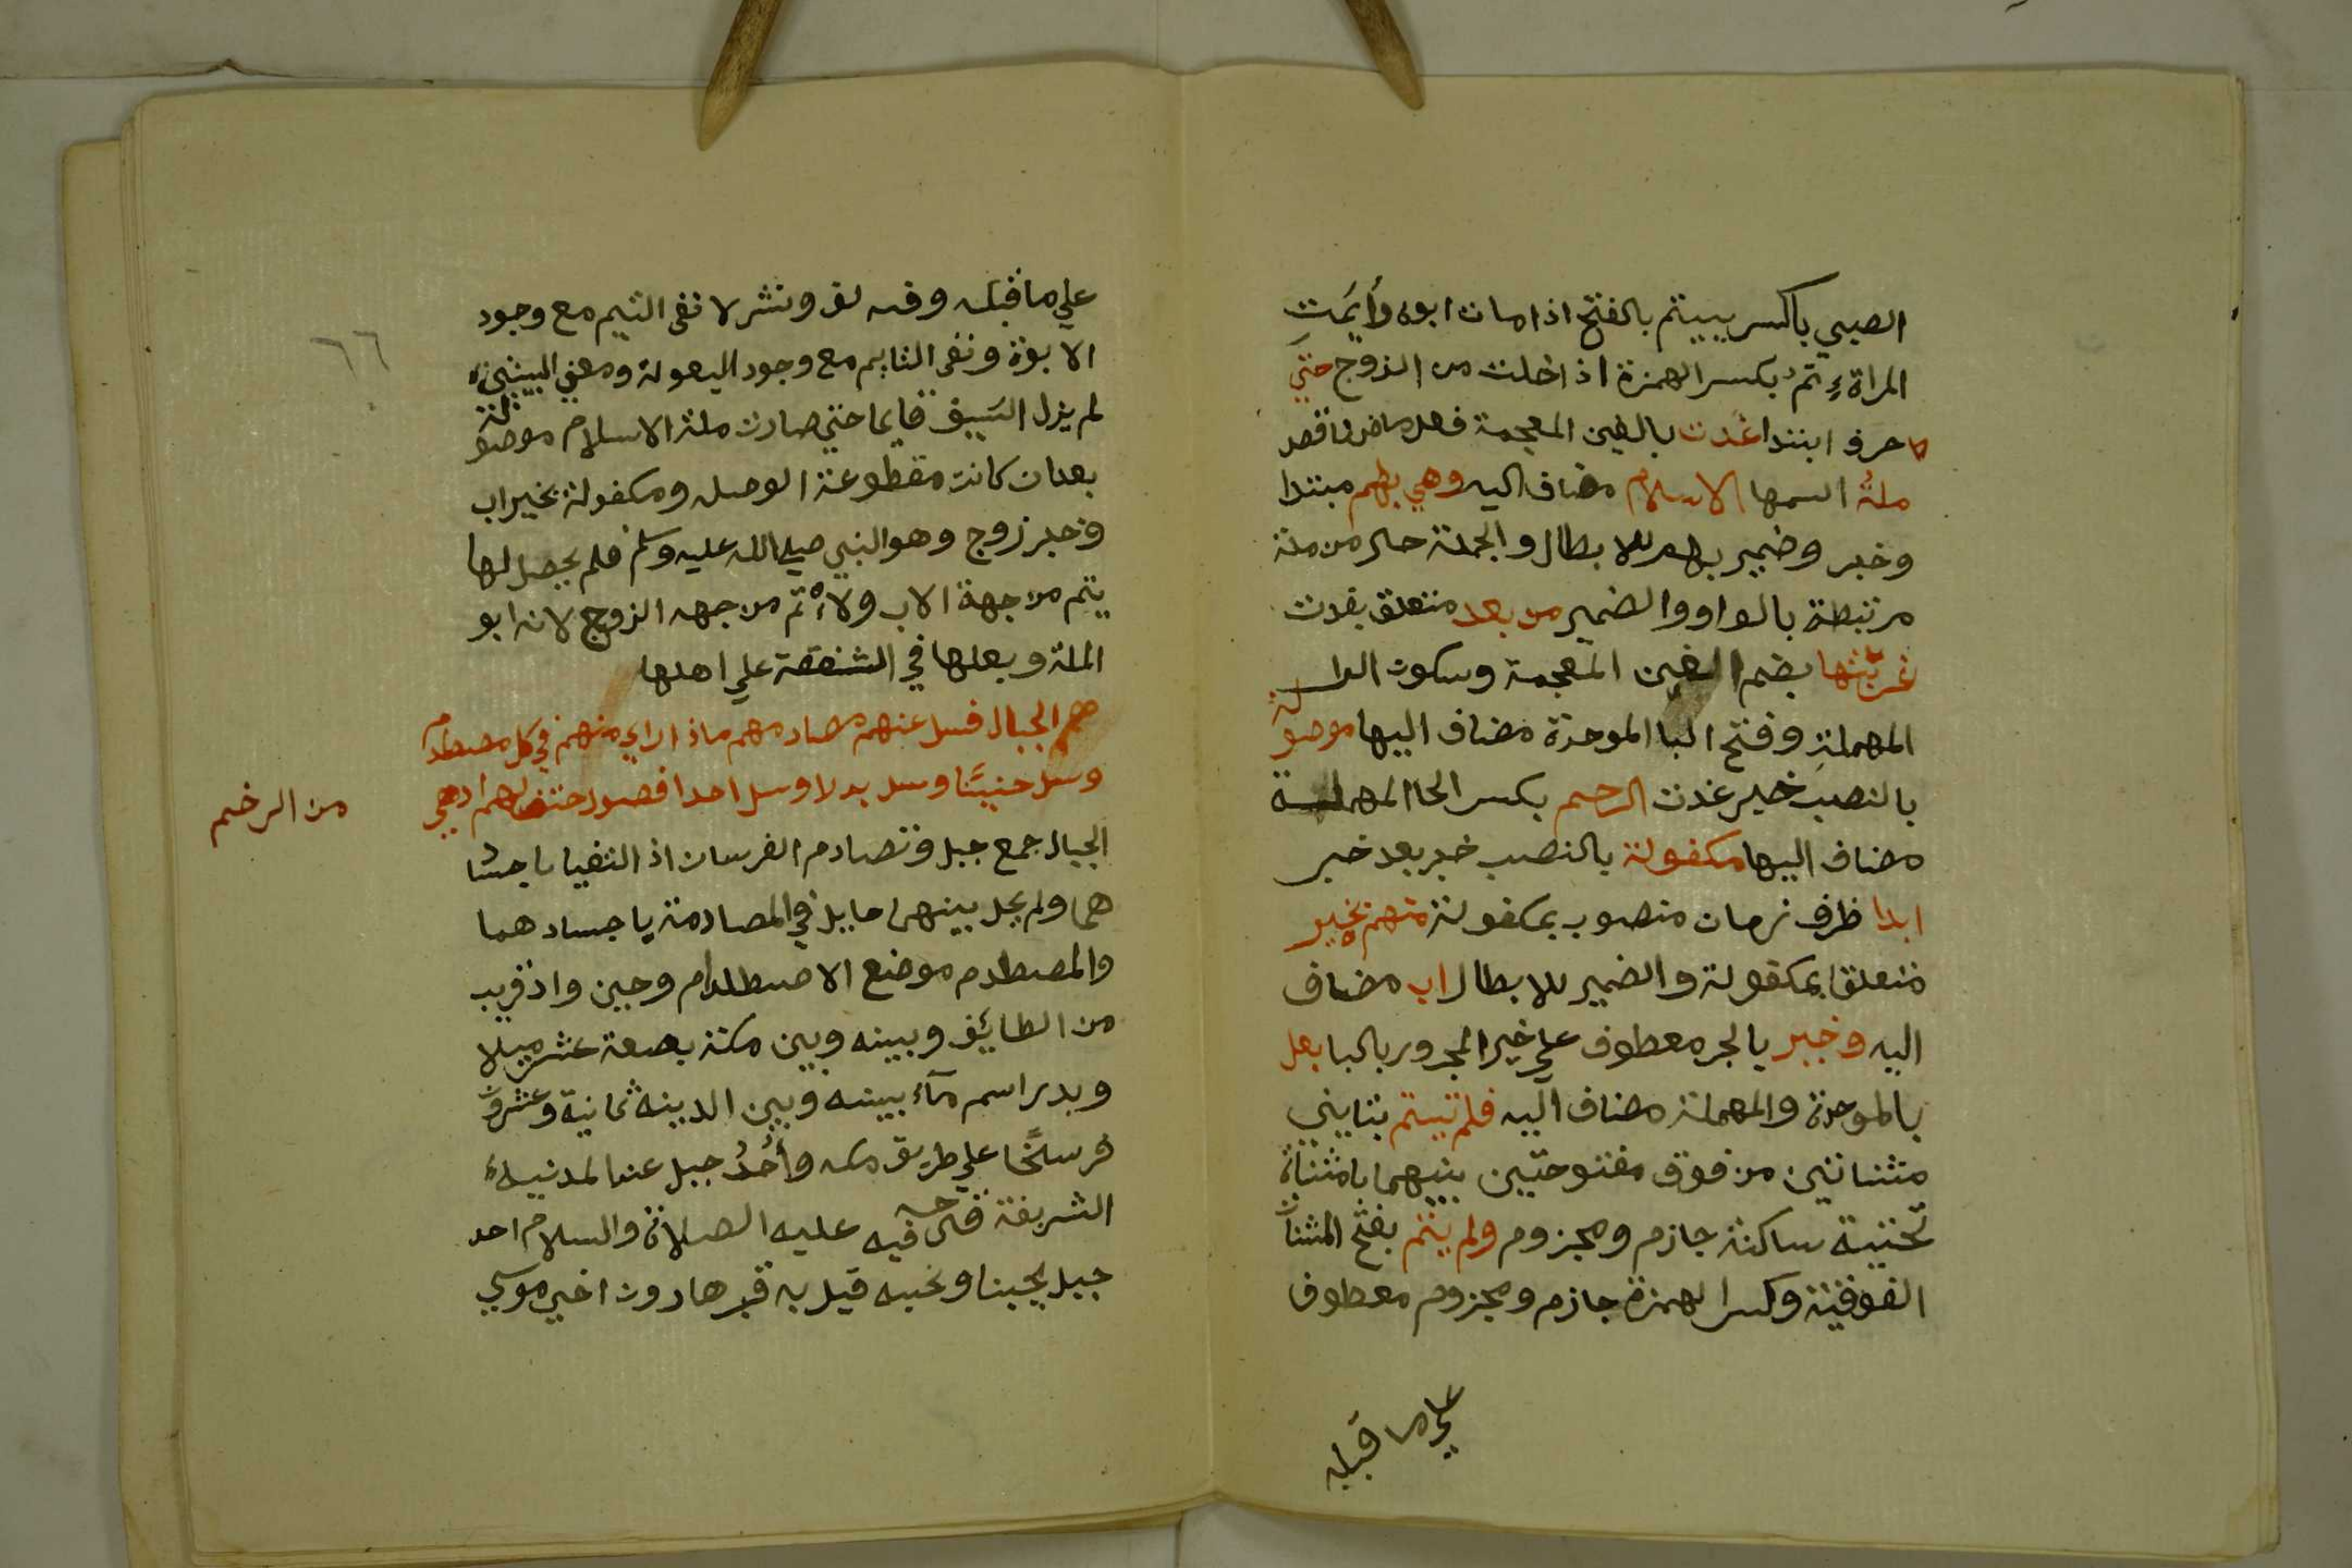 الصبي باكسر ييتم بالفتح اذا مات ابوه وأيمت
المراة ءِتم بكسر الهمزة اذ اخلت من الزوج حتي
حرف ابتدا غدت بالغين المعجمة فعل ماض ناقص
ملة اسمها الاسلام مضاف اليه وهي بهم مبتدا
وخبر وضمير بهم للابطال والجملة حال من ملة
مرتبطة بالواو والضمير من بعد متعلق بغدت
غربتها بضم الغين المعجمة وسكون الرا
المهملةِ وفتح البا الموحدة مضاف اليها موصولة
بالنصب خبر غدت الرحم بكسر الحا المهملة
مضاف اليها مكفولة بالنصب خبر بعد خبر
ابدا ظرف زمان منصوب بمكفولة منهم بخير
متعلقا بمكفولة والضمير للابطال اب مضاف
اليه وخير بالجر معطوف علي خير المجرور بالبا بعل
بالموحدة والمهملة مضاف اليه فلم تيتم بتايني
مثناتين من فوق مفتوحتين بينهما يا مثناة
تحتية ساكنة جازم ومجزوم ولم يتم بفتح المثناة
الفوقية وكسر الهمزة جازم ومجزوم معطوف
علي ما قبله
٦٦
علي ما قبله وفيه لف ونشر لا نفي التيم مع وجود
الابوة ونفي التايم مع وجود البعولة ومعني البيتين
لم يزل السيف قايما حتي صارت ملة الاسلام موصولة
بعد ان كانت مقطوعة الوصل ومكفولة بخير اب
وخير زوج وهو النبي صلي الله عليه وسلم فلم يحصل لها
يتم من جهة الاب ولا ءتم من جهه الزوج لانه ابو
الملة وبعلها في الشفقة علي اهلها
هم الجبال فسل عنهم مصادمهم ماذا راي منهم في كل مصطدم
وسل حنينًا وسل بدرا وسل احدا فصول حتف لهم ادهي
من الرخم
الجبال جمع جبل وتصادم الفرسان اذ التقيا باجسا
هما ولم يحل بينهما حايل في المصادمة ياجسادهما
والمصطدم موضع الاصطدام وحين واد قريب
من الطايف وبينه وبين مكة بضعة عشر ميلا
وبدر اسم مآء بينه وبين المدينه ثمانية وعشرون
فرسخًا علي طريق مكه وأُحُدُ جبل عند المدنيه
الشريفة قال فيه عليه الصلاة والسلام احد
جبل يحبنا ونحبه قيل به قبر هارون اخي موسي